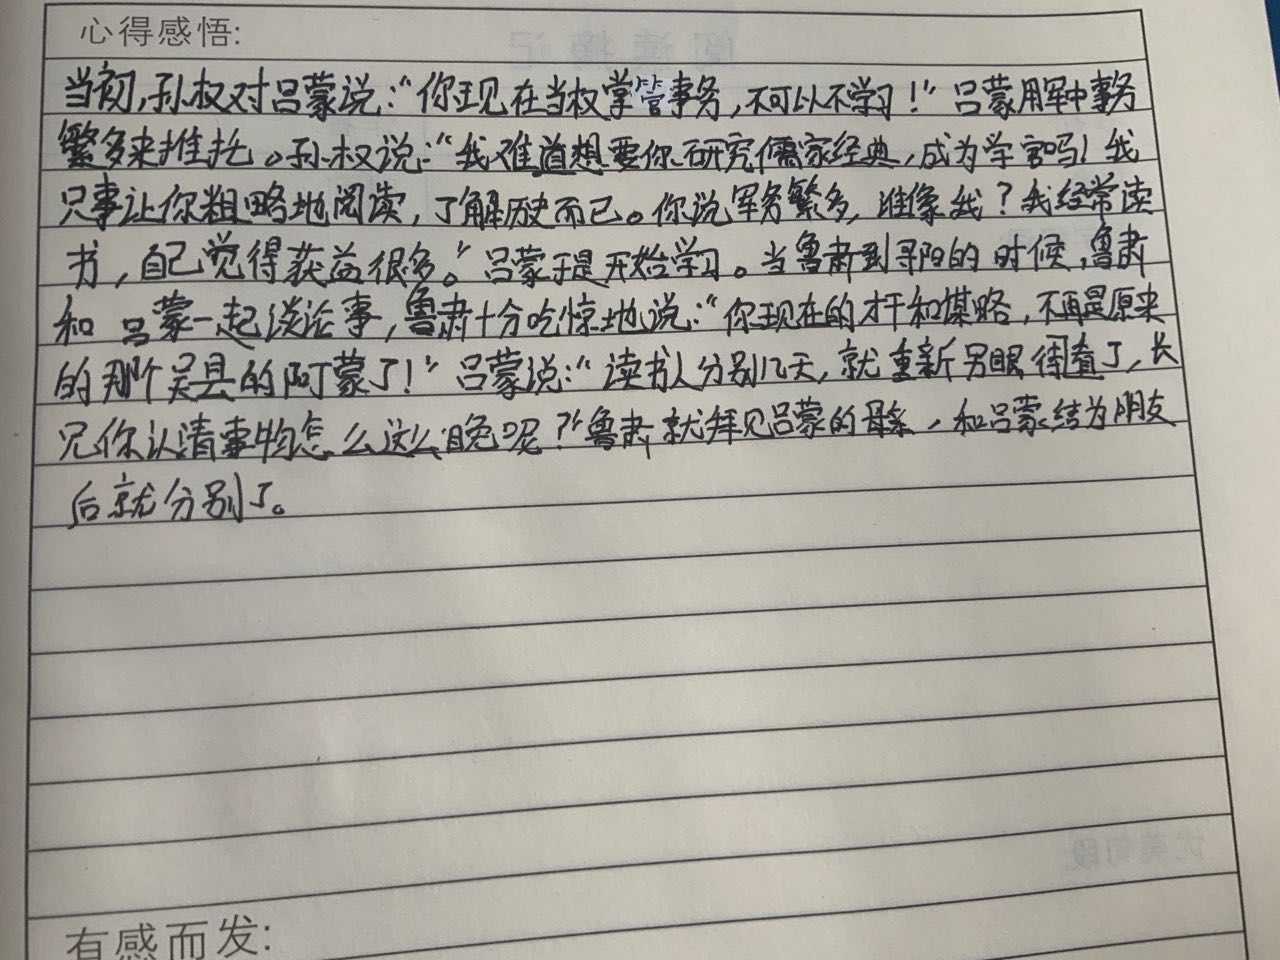 心得感悟:
当初,孙权对吕蒙说:“你现在当权掌管事务,不可以不学习!”吕蒙用军中事务
繁多来推托。孙权说:“我难道想要你研究儒家经典,成为学官吗!我
只事让你粗略地阅读,了解历史而已。你说军务繁多,谁象我?我经常读
书,自己觉得获益很多。”吕蒙于是开始学习。当鲁肃到寻阳的时候,鲁肃
和吕蒙一起谈论事,鲁肃十分吃惊地说:“你现在的才干和谋略,不再是原来
的那个吴县的阿蒙了!”吕蒙说:“读书人分别几天,就重新另眼待了,长
兄你认清事物怎么这么晚呢?”鲁肃就拜见吕蒙的母亲,和吕蒙结为朋友
后就分别了。
有感而发: